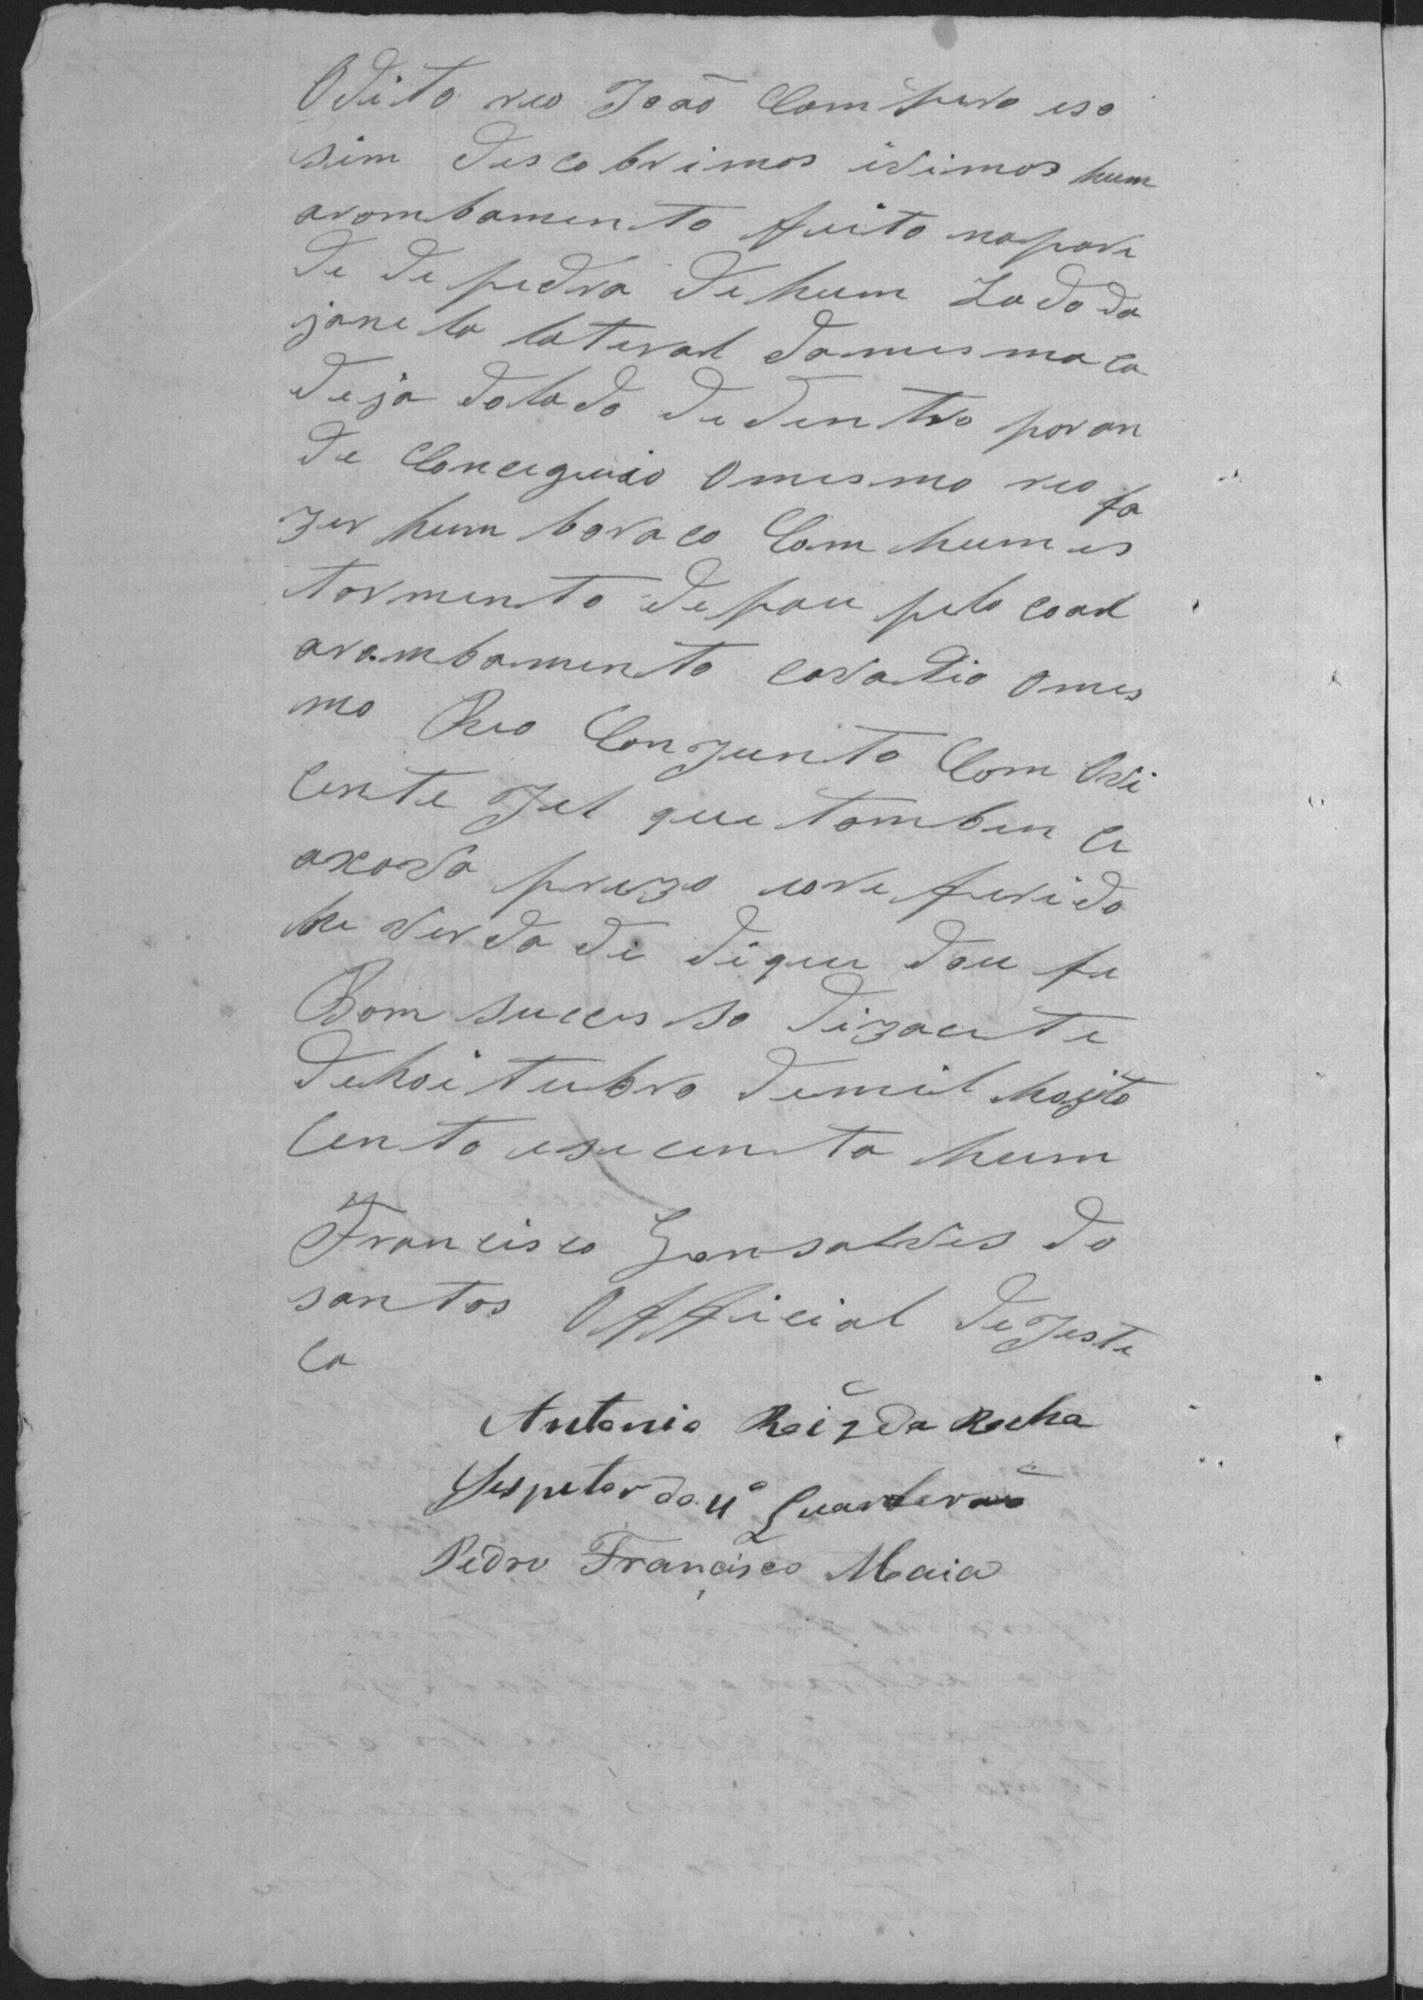 O dito reo João Comfuro eso
sim descobrimos ivimos hum
arombamento feito napare
de de pedra dehum Lado da
janela lateral damesma ca
deja dolado dedentro poron
de Conceguio Omesmo reo fa
zer hum boraco Com humes
tormento depau pelo coal
arambamento eovadio Omes
mo Reo Conjunto Com Ovi
cente Jel que tambem ce
axava prezo eoreferido
he verdade dique dou fe
Bom sucesso dizacete
dehoitubro demil hojto
Cento esecenta hum
Francisco Gonsalves do
santos Official dejuste
ca
Antonio Reiz da Rocha
Jnspetor do 4º Quarteraõ
Pedro Francisco Maia